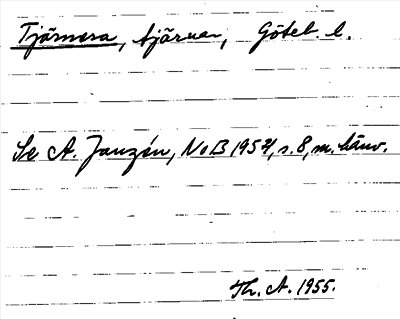 Tjärnesa, tjärnar, Götel. l.
Se A. Janzén, NoB 1954, s. 8, m. hänv.
Th. A. 1955.